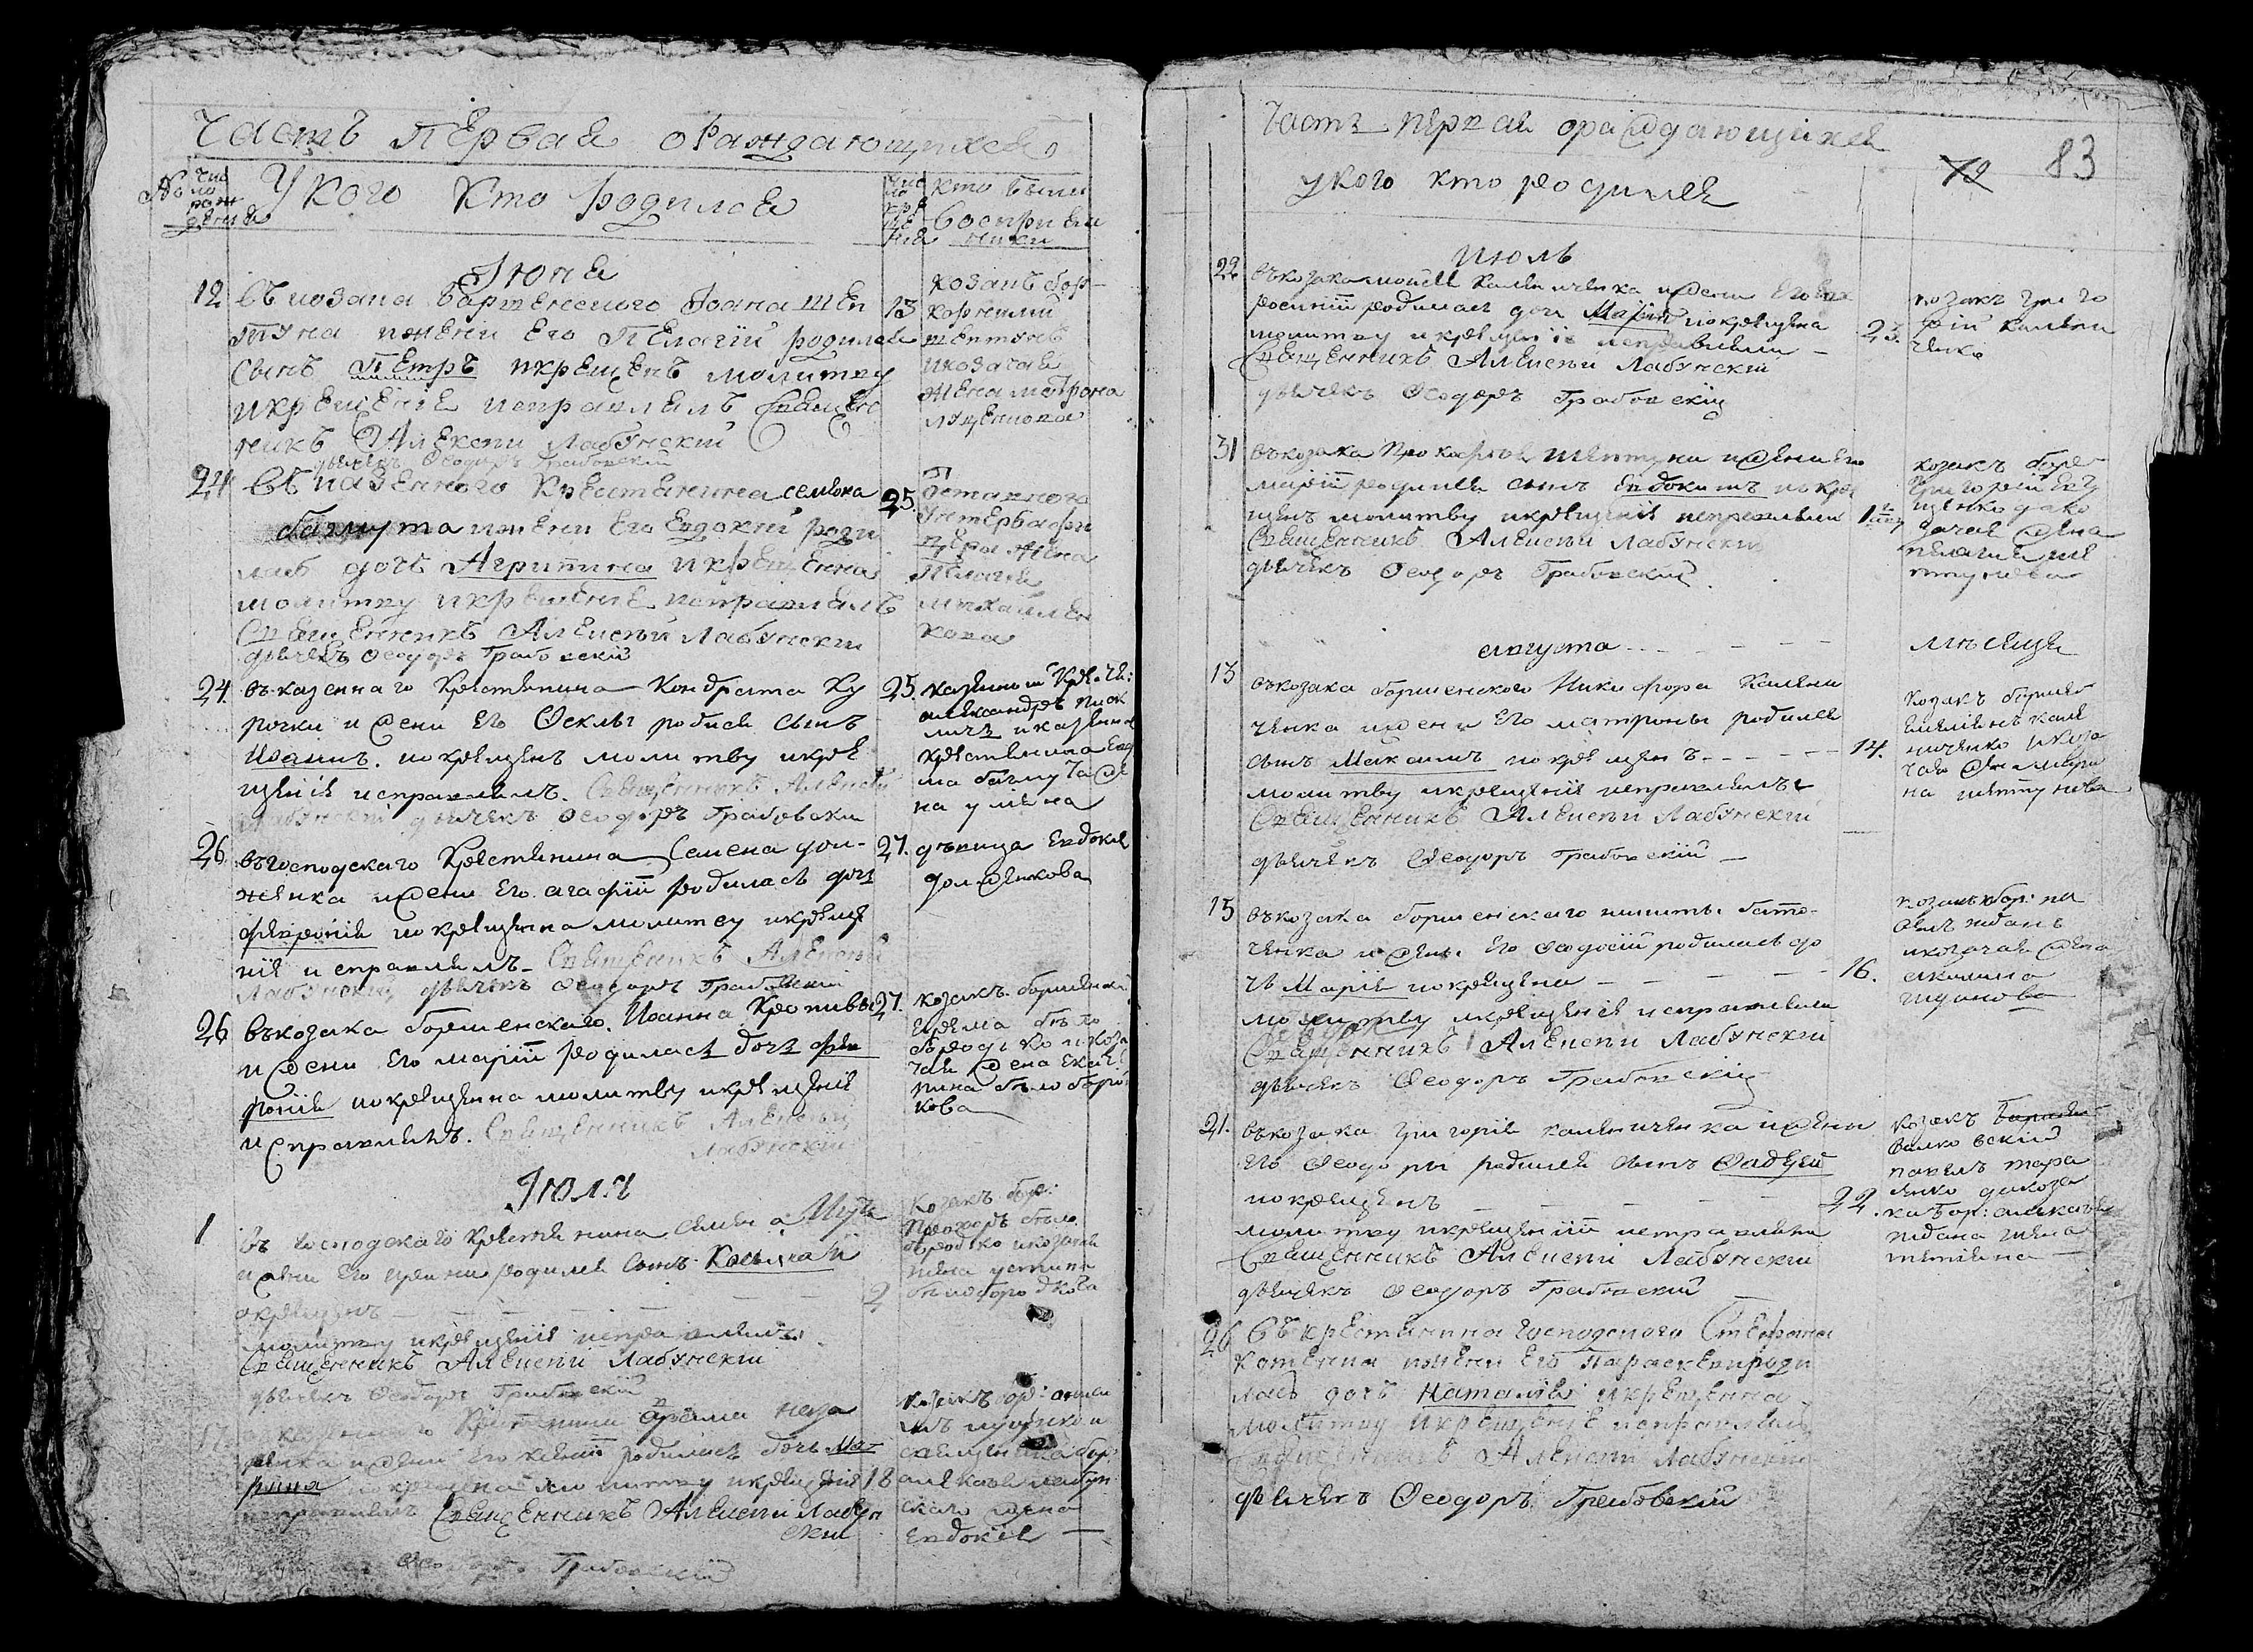 Часть первая о раждающихся
№
Число рождения
У кого Кто родился
Число крещения
Кто были восприемники
Июня
12
въ козака Борщенского Иоана Шеп
туна и жени его Пелагии родился
сынъ Петръ и крещенъ молитву
и крещение исправлялъ Священ
никъ Алексей Лабунский
дьячекъ Феодоръ Грабовский
13
козакъ бор-
Корнилий
шептунъ
и козачая
жена матрона
24
въ казенного Крестянина семиона
багмута и жени его Евдокии роди
лась дочь Агрипина и крещенна
молитву и крещение исправлялъ
Священникъ Алексей Лабунский
дьячекъ Феодоръ Грабовский
25.
Отставного
унтербафи
цера жена
Пелагея
михайлен
кова
24.
въ казеннаго Крестянина Кондрата Ку
рочки и жени его Феклы родися сынъ
Иоаннъ. и крещенъ молитву и кре
щения исправлялъ. Священникъ Алексей
Лабунский дьячекъ Феодоръ Грабовский
25.
казенный Кре-
александръ
и казенного
крестянина
багмута же
на улияна
26.
въ господскаго Крестянина Семена дол-
женка и жени его агафии родилась дочь
феврония и крещенна молитву и креще
ния исправлялъ. Священникъ Алексей
Лабунский дьячекъ Феодоръ Грабовский
27.
девица Евдокия
долженкова
26
въ козака борщенскаго Иоанна Кропивы
и жени его марии родилась дочь фев
рония и крещенна молитву и крещения
исправлялъ. Священникъ Алексей
Лабунский
27.
козакъ борщенский
Ерема бело
бородко и коза
чая жена Екате
рина белоборо
кова
Июля
1
въ господскаго Крестянина
и жени его ирини родился сынъ
и крещенъ
молитву и крещения исправляли
Священникъ Алексей Лабунский
дьячекъ Феодоръ Грабовский
2
козакъ бор:
Прохоръ бело
бородко и козачая
жена устина
белобородкова
17
казенного Крестянина
и жени его родилась дочь Ма-
рина и крещенна молитву и крещения
исправлялъ Священникъ Алексей Лабун
ский
Феодоръ Грабовский
18
козакъ бор:
священника бор:
алексея лабун
скаго жена
Евдокия
Часть первая о раждающихся
72 83
у кого кто родился
Июль
22
въ козака моисея Калениченка и жени его Евф
росинии родилась дочь Мария и крещена
молитву и крещения исправляли
Священникъ Алексей Лабунский
дьячекъ Феодоръ Грабовский
23.
козакъ григо
рий калени
ченко
31
въ козака Прокофия Шептуна и жени его
марии родился сынъ Евдокимъ и кре
щенъ молитву и крещения исправляли
Священникъ Алексей Лабунский
дьячекъ Феодоръ Грабовский
1
козакъ бор
григорий
щенко да ко
зачая жена
пелагия ше
птунова
августа
месяца
13
въ козака борщенского Никифора Калени
ченка и жени его матроны родился
сынъ Максимъ и крещенъ
молитву и крещения исправлялъ
Священникъ Алексей Лабунский
дьячекъ Феодоръ Грабовский
14.
козакъ борщен
емелиянъ кале
ниченко и коза
чая жена мари
на шептунова
15
въ козака борщенскаго никиты бато-
ченка и жены его феодосии родилась до
чь Мария и крещена
молитву и крещения исправляли
Священникъ Алексей Лабунский
дьячекъ Феодоръ Грабовский
16.
козакъ бор: па
велъ жданъ
и козачая жена
акилина
жданова
21.
въ козака григория калениченка и жены
его Феодоры родился сынъ Фадей
и крещенъ
молитву и крещения исправляли
Священникъ Алексей Лабунский
дьячекъ Феодоръ Грабовский
22.
козакъ
павелъ тара
сенко да коза
ка бор:
ждана жена
татияна
26
въ крестянина господского Стефана
Котенка и жени его Параскеви роди
лась дочь Наталия и крещенна
молитву и крещение исправляли
Священникъ Алексей Лабунский
дьячекъ Феодоръ Грабовский